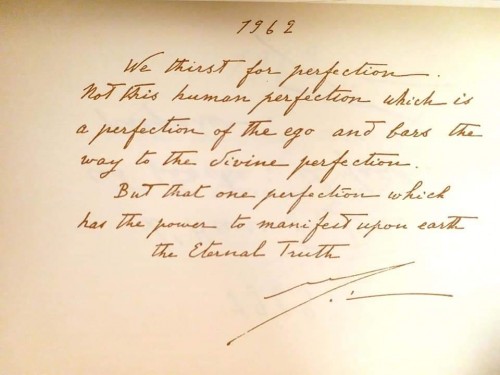 1962
We thirst for perfection.
Not this human perfection which is
a perfection of the ego and bars the
way to the divine perfection.
But that one perfection which
has the power to manifest upon earth
the Eternal Truth